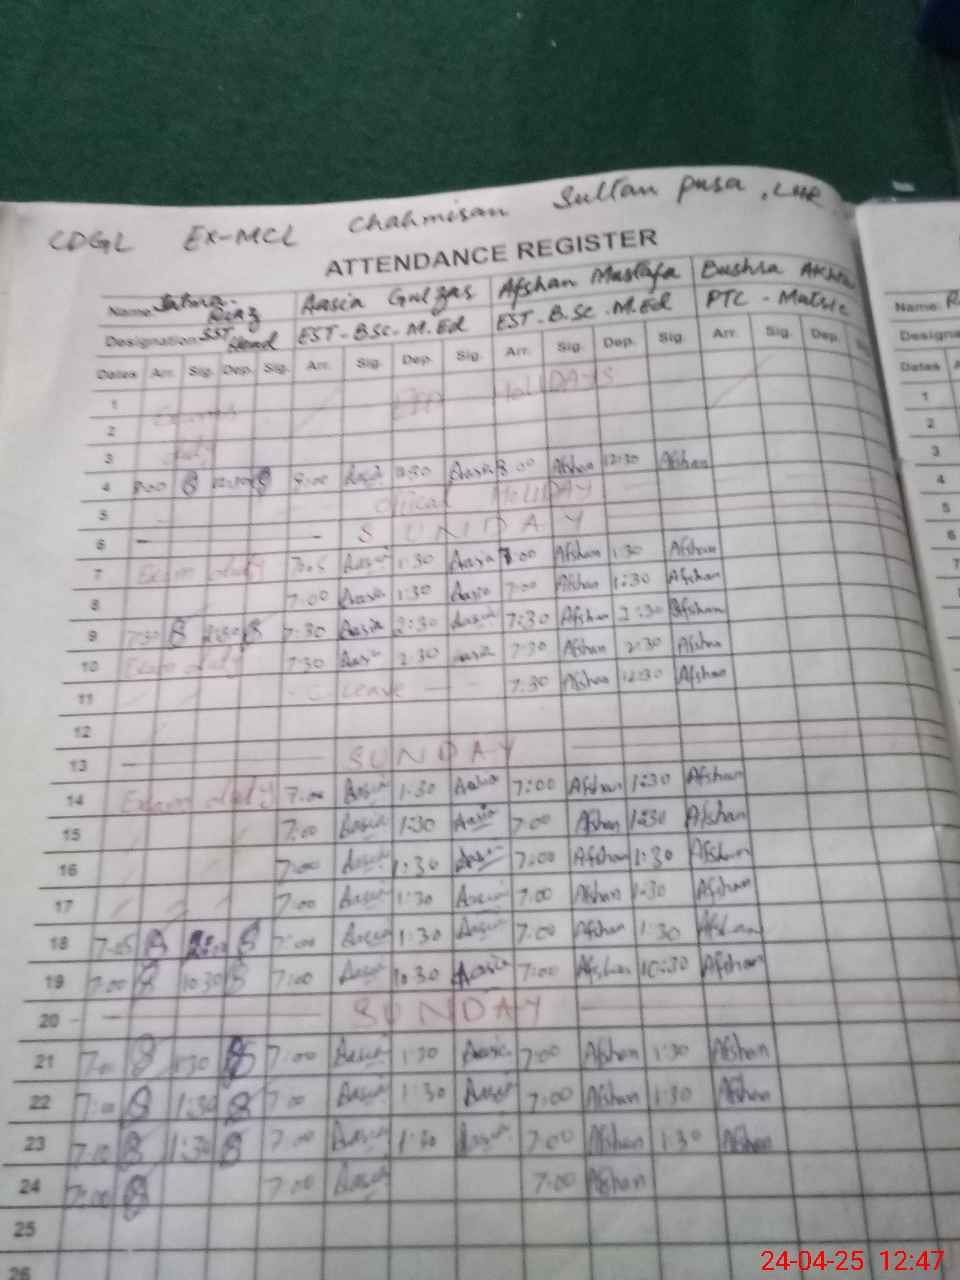 CDGL EX-MCL Chahmisan Sultan pusa, LHR.
ATTENDANCE REGISTER
Name: Riaz Aasia Gulzas Afshan Mustafa Bushra
Designation SST Head EST-B.Sc-M.Ed EST-B.Sc.M.Ed PTC-Matric
Dates Arr. Sig. Dep. Sig. Arr. Sig. Dep. Sig. Arr. Sig. Dep. Sig. Arr. Sig. Dep.
1 HOLIDAYS
2
3 duty
4 8:00 8:00 Aasia 8:00 Afshan 12:30 Afshan
5 HOLIDAY
6 SUNDAY
7 Exam duty 7:05 Aasia 1:30 Aasia 7:00 Afshan 1:30 Afshan
8 7:00 Aasia 1:30 Aasia 7:00 Afshan 1:30 Afshan
9 7:30 7:30 Aasia 2:30 Aasia 7:30 Afshan 2:30 Afshan
10 Exam duty 7:30 Aasia 2:30 Aasia 7:30 Afshan 2:30 Afshan
11 Leave 7:30 Afshan 12:30 Afshan
12
13 SUNDAY
14 Exam duty 7:00 Aasia 1:30 Aasia 7:00 Afshan 1:30 Afshan
15 7:00 Aasia 1:30 Aasia 7:00 Afshan 1:30 Afshan
16 7:00 Aasia 1:30 Aasia 7:00 Afshan 1:30 Afshan
17 7:00 Aasia 1:30 Aasia 7:00 Afshan 1:30 Afshan
18 7:05 7:00 Aasia 1:30 Aasia 7:00 Afshan 1:30 Afshan
19 7:00 10:30 7:00 Aasia 10:30 Aasia 7:00 Afshan 10:30 Afshan
20 SUNDAY
21 7:00 1:30 7:00 Aasia 1:30 Aasia 7:00 Afshan 1:30 Afshan
22 7:00 1:30 7:00 Aasia 1:30 Aasia 7:00 Afshan 1:30 Afshan
23 7:00 1:30 7:00 Aasia 1:30 Aasia 7:00 Afshan 1:30 Afshan
24 7:00 7:00 Aasia 7:00 Afshan
25
26
Name:
Dates
1
2
3
4
5
6
7
24-04-25 12:47